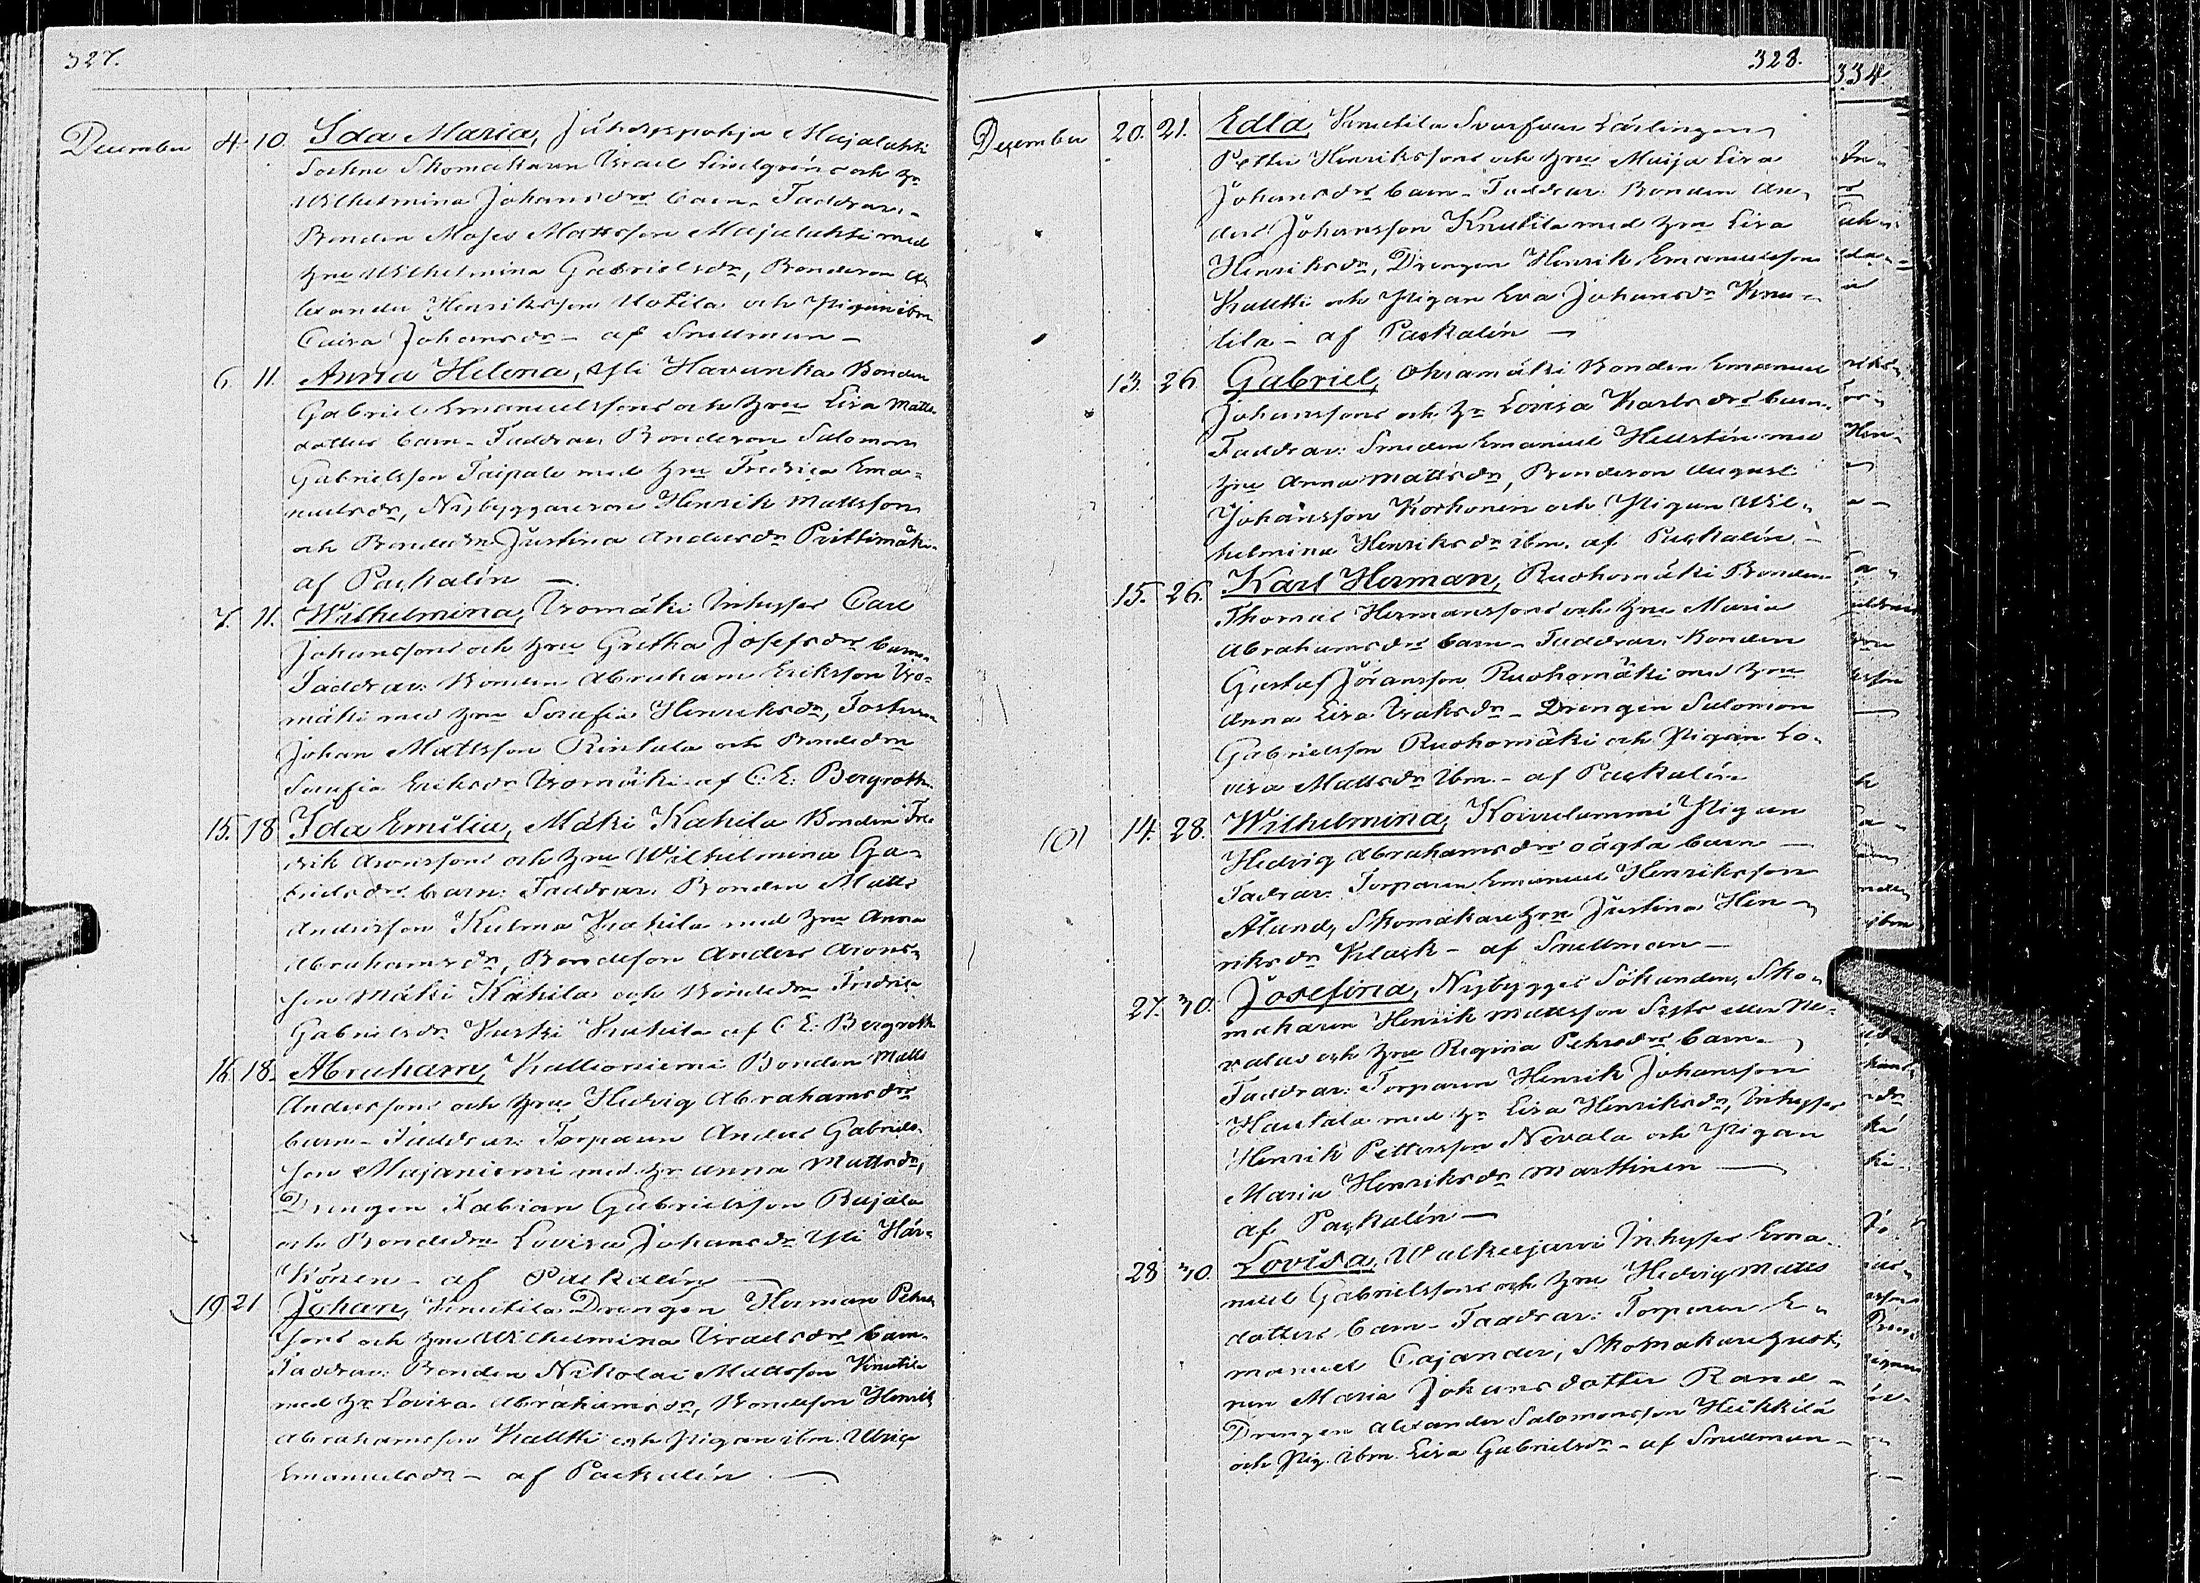 327.
December 4. 10. Ida Maria, Majalahti
Sockne Skomakaren Israel Lindqvins och hr
Wilhelmina Johansdrs barn. Faddrar:
Bonden Moses Mattsson Majalahti med
hru Wilhelmina Gabrielsdr, Bondeson A
lexander Henriksson Uotila och Pigan ibm
Caisa Johansdr – af Snellman –
6. 11. Anna Helena, Yli Havunka Bonden
Gabriel Emanuelssons och hru Lisa Matts
dotters barn – Faddrar: Bondeson Salomon
Gabrielsson Taipale med hru Fredrica Ema-
nuelsdr, Nybyggareson Henrik Mattsson
och Bondedr Justina Andersdr Pirttimäki
af Paskalin –
7. 11. Wilhelmina, Isomäki Inhyses Carl
Johanssons och hru Gretha Josefsdrs barn
Faddrar: Bonden Abraham Eriksson Iso-
mäki med hru Serafia Henriksdr, Fosterson
Johan Mattsson Rintala och Bondedrn
Serafia Eriksdr Isomäki af C. E. Bergroth
15. 18. Ida Emilia, Mäki Kahila Bonden Fre
drik Aronssons och hru Wilhelmina Ga-
brielsdrs barn: Faddrar: Bonden Matts
Andersson Kulma Kahila med hru Anna
Abrahamsdr, Bondeson Anders Arons-
son Mäki Kahila och Bondedrn Fredrica
Gabrielsdr Kahila af C. E. Bergroth
16. 18. Abraham, Kallioniemi Bonden Matts
Anderssons och hru Hedvig Abrahamsdrs
barn – Faddrar: Torparen Anders Gabriels-
son Majaniemi med hr Anna Mattsdr,
Drengen Fabian Gabrielsson Pajala
och Bondedrn Lovisa Johansdr Yli Här-
könen – af Paskalin –
19. 21. Johan, Knutila Drengen Herman Pehrs
sons och hru Wilhelmina Israelsdrs barn
Faddrar: Bonden Nikolai Mattsson Knutila
med hr Lovisa Abrahamsdr, Bondeson Henrik
Abrahamsson Kaltti och Pigan ibm Ulrica
Emanuelsdr – af Paskalin –
328.
December 20. 21. Edla, Knutila Svarfvare Lärlingen
Petter Henrikssons och hru Maija Lisa
Johansdrs barn – Faddrar: Bonden An-
ders Johansson Knutila med hru Lisa
Henriksdr, Drengen Henrik Emanuelsson
Kaltti och Pigan Eva Johansdr Knu-
tila – af Paskalin –
13. 26. Gabriel, Ohramäki Bonden Emanuel
Johanssons och hr Lovisa Karlsdrs barn.
Faddrar: Smeden Emanuel Hellstén med
hru Anna Mattsdr, Bondeson August
Johansson Korhonen och Pigan Wil-
helmina Henriksdr ibm. af Paskalin –
15. 26. Karl Herman, Ruohomäki Bonden
Thomas Hermanssons och hru Maria
Abrahamsdrs barn – Faddrar: Bonden
Gustaf Jöransson Ruohomäki med hru
Anna Lisa Isaksdr – Drengen Salomon
Gabrielsson Ruohomäki och Pigan Lo-
visa Mattsdr ibm – af Paskalin
(0) 14. 28. Wilhelmina, Koivulammi Pigan
Hedvig Abrahamsdrs oägta barn –
Fadrar: Torparen Emanuel Henriksson
Ålund, Skomakarehru Justina Hen-
riksdr Klack – af Snellman –
27. 30. Josefina, Nybygges Sökanden, Sko-
makaren Henrik Mattsson eller Ne-
valas och hru Regina Pehrsdrs barn –
Faddrar: Torparen Henrik Johansson
Hautala med hr Lisa Henriksdr, Inhyses
Henrik Pettersson Nevala och Pigan
Maria Henriksdr Marttinen –
af Paskalin –
28. 30. Lovisa, Walkeajärvi Inhyses Ema-
nuel Gabrielssons och hru Hedvig Matts
dotters barn – Faddrar: Torparen E-
manuel Cajander, Skomakarehust-
run Maria Johansdotter Rand –
Drengen Alexander Salomonsson Heikkilä
och Pig. ibm. Lisa Gabrielsdr – af Snellman –
334